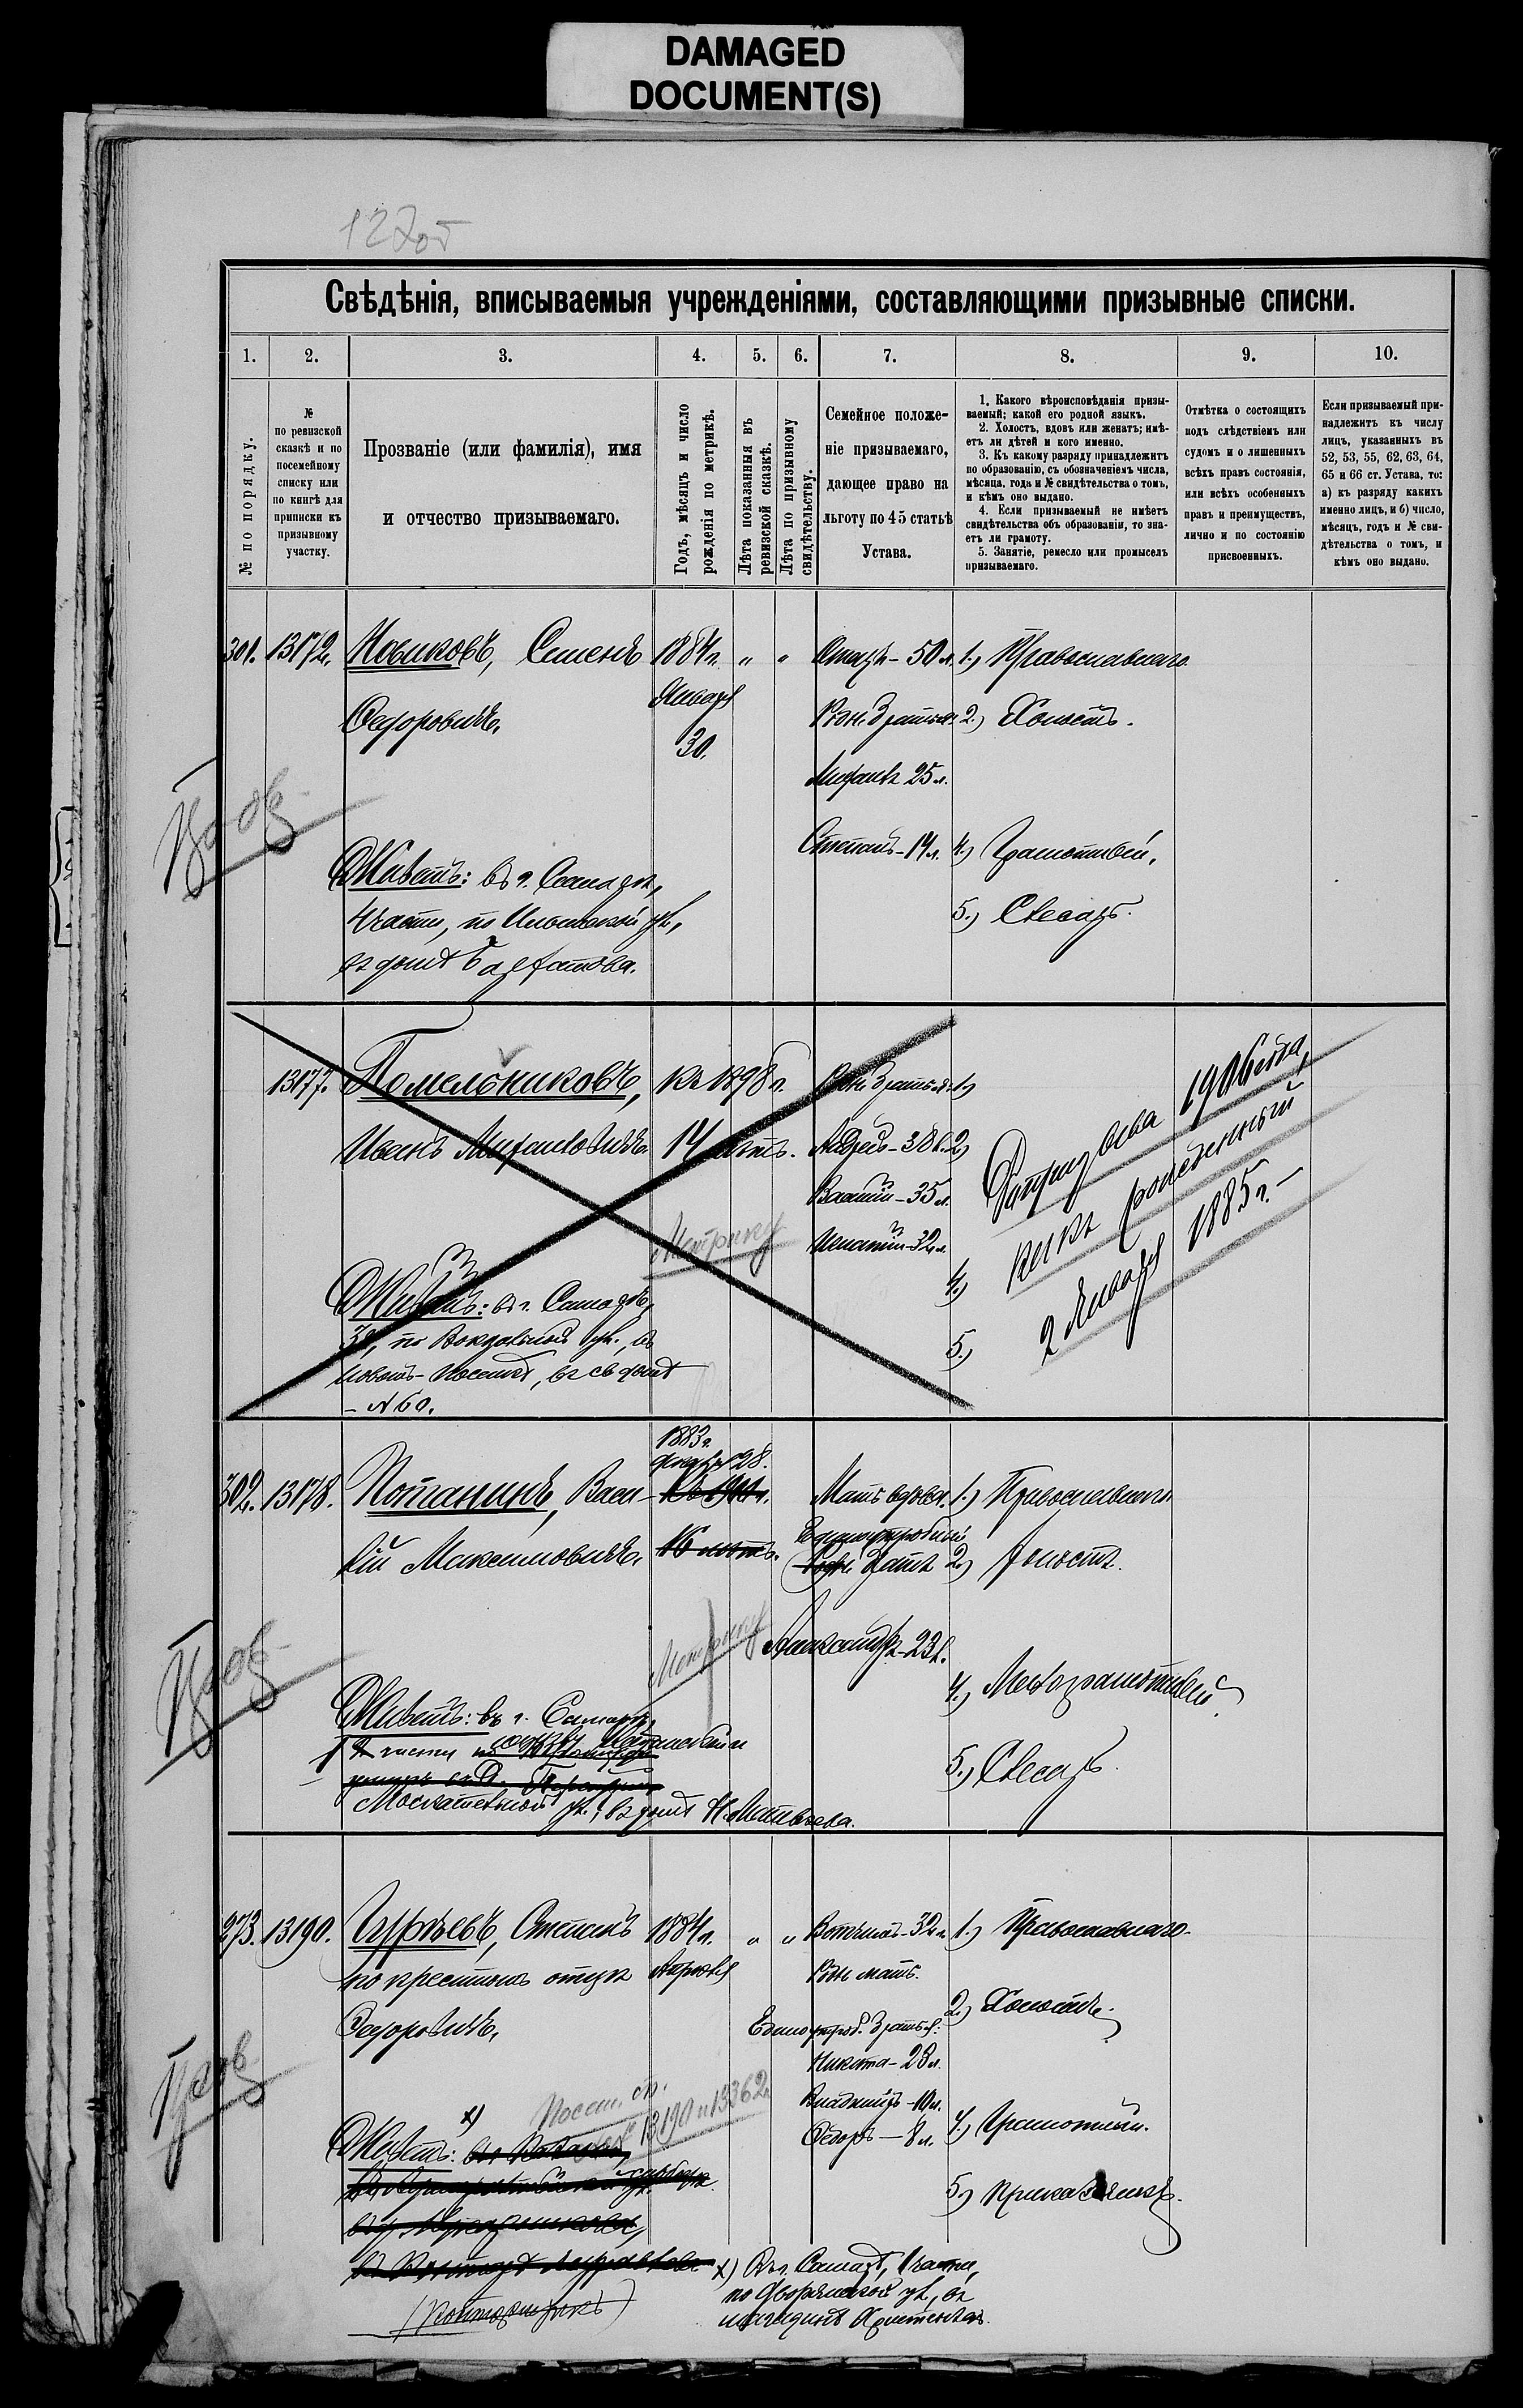 DAMAGED
DOCUMENT(S)
127об
Свѣдѣнія, вписываемыя учрежденіями, составляющими призывные списки.
1. 2. 3. 4. 5. 6. 7. 8. 9. 10.
№ по порядку.
№
по ревизской
сказкѣ и по
посемейному
списку или
по книгѣ для
приписки къ
призывному
участку.
Прозваніе (или фамилія), имя
и отчество призываемаго.
Годъ, мѣсяцъ и число
рожденія по метрикѣ.
Лѣта показанныя въ
ревизской сказкѣ.
Лѣта по призывному
свидѣтельству.
Семейное положе-
ніе призываемаго,
дающее право на
льготу по 45 статьѣ
Устава.
1. Какого вѣроисповѣданія призы-
ваемый; какой его родной языкъ.
2. Холостъ, вдовъ или женатъ; имѣ-
етъ ли дѣтей и кого именно.
3. Къ какому разряду принадлежитъ
по образованію, съ обозначеніемъ числа,
мѣсяца, года и № свидѣтельства о томъ,
и кѣмъ оно выдано.
4. Если призываемый не имѣетъ
свидѣтельства объ образованіи, то зна-
етъ ли грамоту.
5. Занятіе, ремесло или промыселъ
призываемаго.
Отмѣтка о состоящихъ
подъ слѣдствіемъ или
судомъ и о лишенныхъ
всѣхъ правъ состоянія,
или всѣхъ особенныхъ
правъ и преимуществъ,
лично и по состоянію
присвоенныхъ.
Если призываемый при-
надлежитъ къ числу
лицъ, указанныхъ въ
52, 53, 55, 62, 63, 64,
65 и 66 ст. Устава, то:
а) къ разряду какихъ
именно лицъ, и б) число,
мѣсяцъ, годъ и № сви-
дѣтельства о томъ, и
кѣмъ оно выдано.
301. 13172. Новиковъ, Семенъ
Федоровичъ.
1884 г.
Января
30.
" "
Отецъ - 50 л.
Родн. братья:
Михаилъ 25 л.
Степанъ - 14 л.
1.) Православнаго
2.) Холостъ.
4.) Грамотный.
5.) Слесарь.
Живетъ: въ г. Самарѣ,
4 части, по Ильинской ул.,
въ домѣ
13177. Помельниковъ,
Иванъ Михайловичъ
Къ 1898 г.
14 лѣтъ.
Метрика
Родн. братья:
Андрей - 38 л.
35 л.
Игнатій - 32 л.
1.)
2.)
4.)
5.)
призыва 1906 года,
какъ рожденный
2 Января 1885 г. -
Живетъ: въ г. Самарѣ,
3 ч., по ул., въ
въ св. домѣ
- № 60.
302. 13178. Потанинъ, Васи-
лій Максимовичъ.
1883 г.
Декабря 28.
16 лѣтъ.
Метрику
Мать вдова.
Единоутробный
Родн. братъ
Александръ - 23 л.
1.) Православнаго
2.) Холостъ.
4.) Малограмотный
5.) Слесарь.
Живетъ: въ г. Самарѣ,
1 части
Москательной ул., въ домѣ Матвѣева.
273. 13190. Гурьевъ, Степанъ
по крестному отцу
Федоровичъ.
1884 г.
Апрѣля
" "
Вотчимъ - 32 л.
Родн. мать.
Единоутроб. братья:
Никита - 28 л.
Владиміръ - 10 л.
Федоръ - 8 л.
1.) Православнаго.
2.) Холостъ.
4.) Грамотный.
5.) Приказчикъ.
13190 и 13362
Живетъ: х)
(Конторщикъ)
х) Въ г. Самарѣ, 1 части,
по Дворянской ул., въ
магазинѣ Христензенъ.